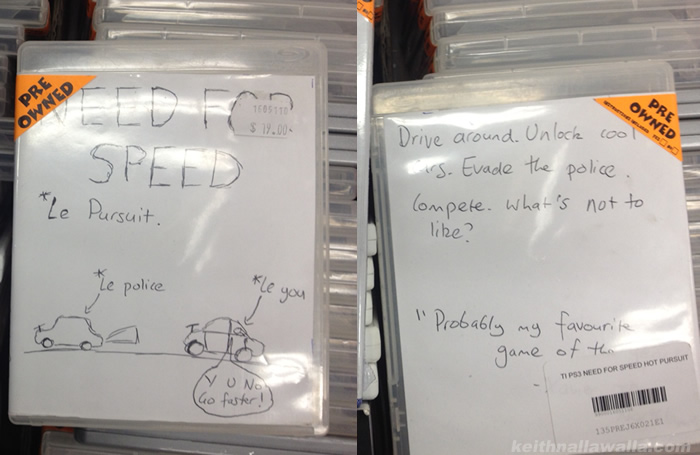 PRE
OWNED
NEED FOR
1609110
$ 19.00
SPEED
*Le Pursuit.
*Le police
*Le you
Y U No
Go faster!
PRE
OWNED
Drive around. Unlock cool
Evade the police.
Compete. What's not to
like?
"Probably my favourite
game of
TI PS3 NEED FOR SPEED HOT PURSUIT
135PREJ6X021E1
keithnallawalla.com